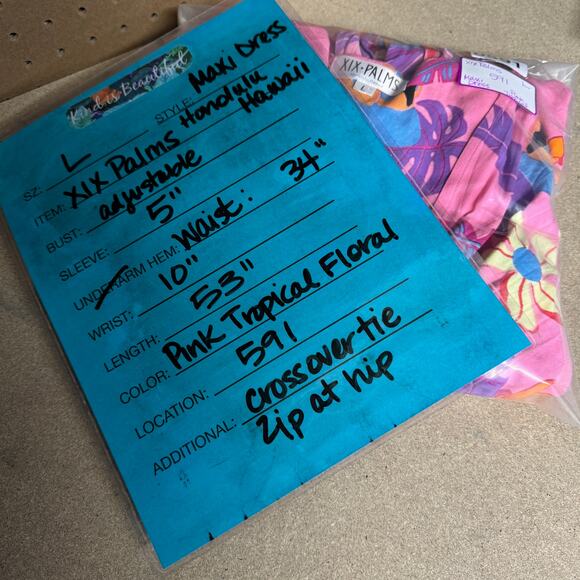 Kind is Beautiful
SZ: L STYLE: Maxi Dress
ITEM: XIX Palms Honolulu Hawaii
BUST: adjustable
SLEEVE: 5"
UNDERARM HEM: Waist: 34"
WRIST: 10"
LENGTH: 53"
COLOR: Pink Tropical Floral
LOCATION: 591
ADDITIONAL: crossover tie
zip at hip
XIX • PALMS
L
XIX Palms
591
Maxi
Dress